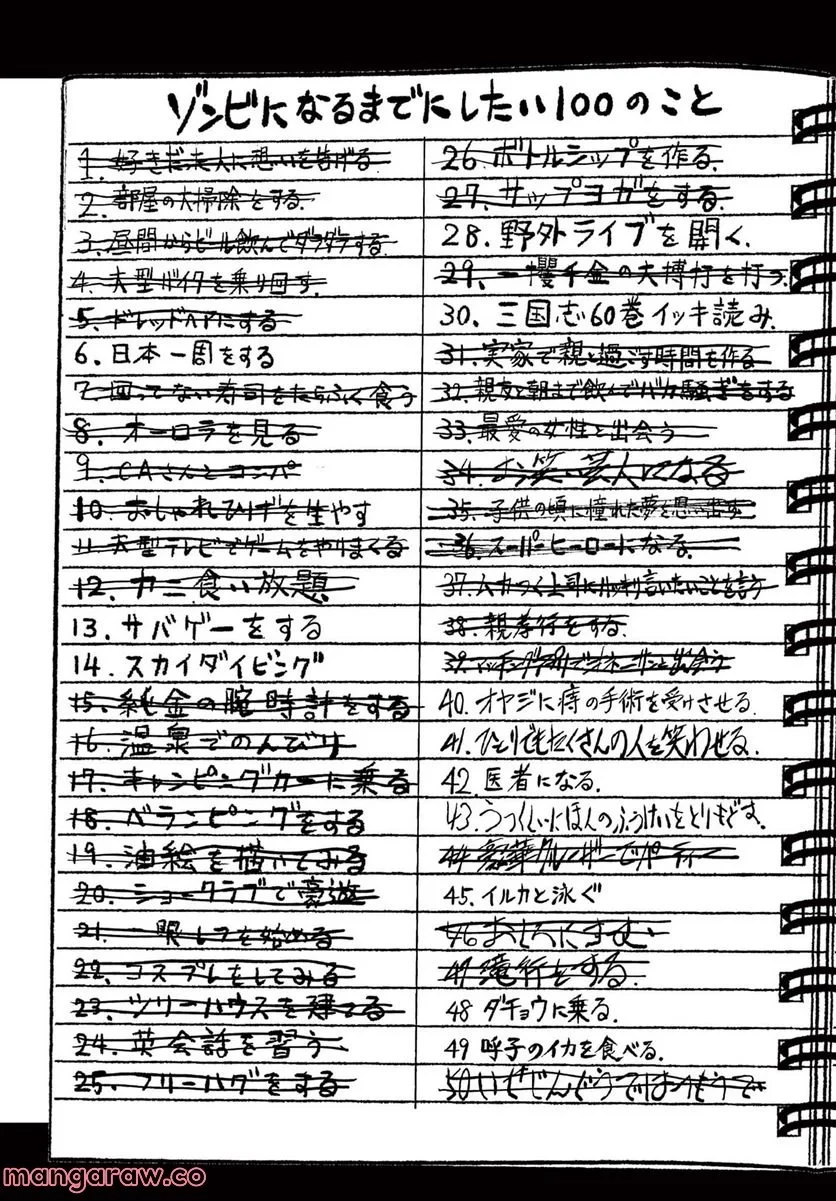 ゾンビになるまでにしたい100のこと
1. 好きだった人に想いを告げる
2. 部屋の大掃除をする.
3. 昼間からビール飲んでダラダラする
4. 大型バイクを乗り回す.
5. ドレッドヘアにする
6. 日本一周をする
7. 回ってない寿司をたらふく食う
8. オーロラを見る
9. CAさんとコンパ
10. おしゃれひげを生やす
11. 大型テレビでゲームをやりまくる
12. カニ食い放題
13. サバゲーをする
14. スカイダイビング
15. 純金の腕時計をする
16. 温泉でのんびり
17. キャンピングカーに乗る
18. ベランピングをする
19. 油絵を描いてみる
20. ショークラブで豪遊
21. 一眼レフを始める
22. コスプレをしてみる
23. ツリーハウスを建てる
24. 英会話を習う
25. フリーハグをする
26. ボトルシップを作る.
27. サップヨガをする.
28. 野外ライブを開く.
29. 一攫千金の大博打を打つ.
30. 三国志60巻イッキ読み.
31. 実家で親と過ごす時間を作る
32. 親友と朝まで飲んでバカ騒ぎをする
33. 最愛の女性と出会う
34. お笑い芸人になる
35. 子供の頃に憧れた夢を思い出す
36. スーパーヒーローになる.
37. ムカつく上司にハッキリ言いたいことを言う
38. 親孝行をする.
39. マッチングアプリでオネーサンと出会う
40. オヤジに痔の手術を受けさせる.
41. ひとりでもたくさんの人を笑わせる.
42. 医者になる.
43. うつくしいにほんのふうけいをとりもどす.
44. 豪華クルーザーでパーティー
45. イルカと泳ぐ
46
47. 滝行をする.
48 ダチョウに乗る.
49 呼子のイカを食べる.
50
mangaraw.co